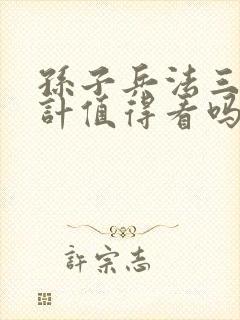 孫子兵法三
計值得看吗
許宗志